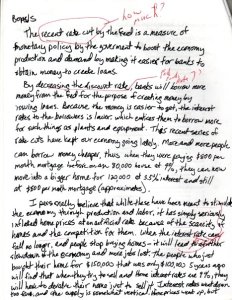 how much?
Bopals
The recent rate cut by the Fed is a measure of
monetary policy by the government to boost the economy
production and demand by making it easier for banks to
obtain money to create loans.
By decreasing the discount rate, banks will borrow more
money from the Fed for the purpose of creating money by
loans. Because the money is easier to get, the interest
rates to the borrowers is lower which entices them to borrow more
for such things as plants and equipment. This recent series of
rate cuts have kept our economy going lately. More and more people
can borrow money cheaper, thus when they were paying $800 per
month mortgage before on an 80,000 house at 9%, they can now
move into a bigger home for 120,000 at 5.5% interest and still
at $800 per month mortgage (approximates).
I personally believe that while these have been meant to
the economy through production and labor, it has simply seriously
inflated home prices at an artificial rate because of the scarcity of
homes and the competition for them. When the interest rate can
fall no longer, and people stop buying homes - it will lead to
slowdown of the economy and more jobs lost. The people who just
bought their home for $150,000 that was only $100,000 5 years ago
will find that when they try to sell and home interest rates are 9%, they
will have to devalue their home just to sell it. Interest rates went down
too fast, and the supply is somewhat vertical, home prices went up, but